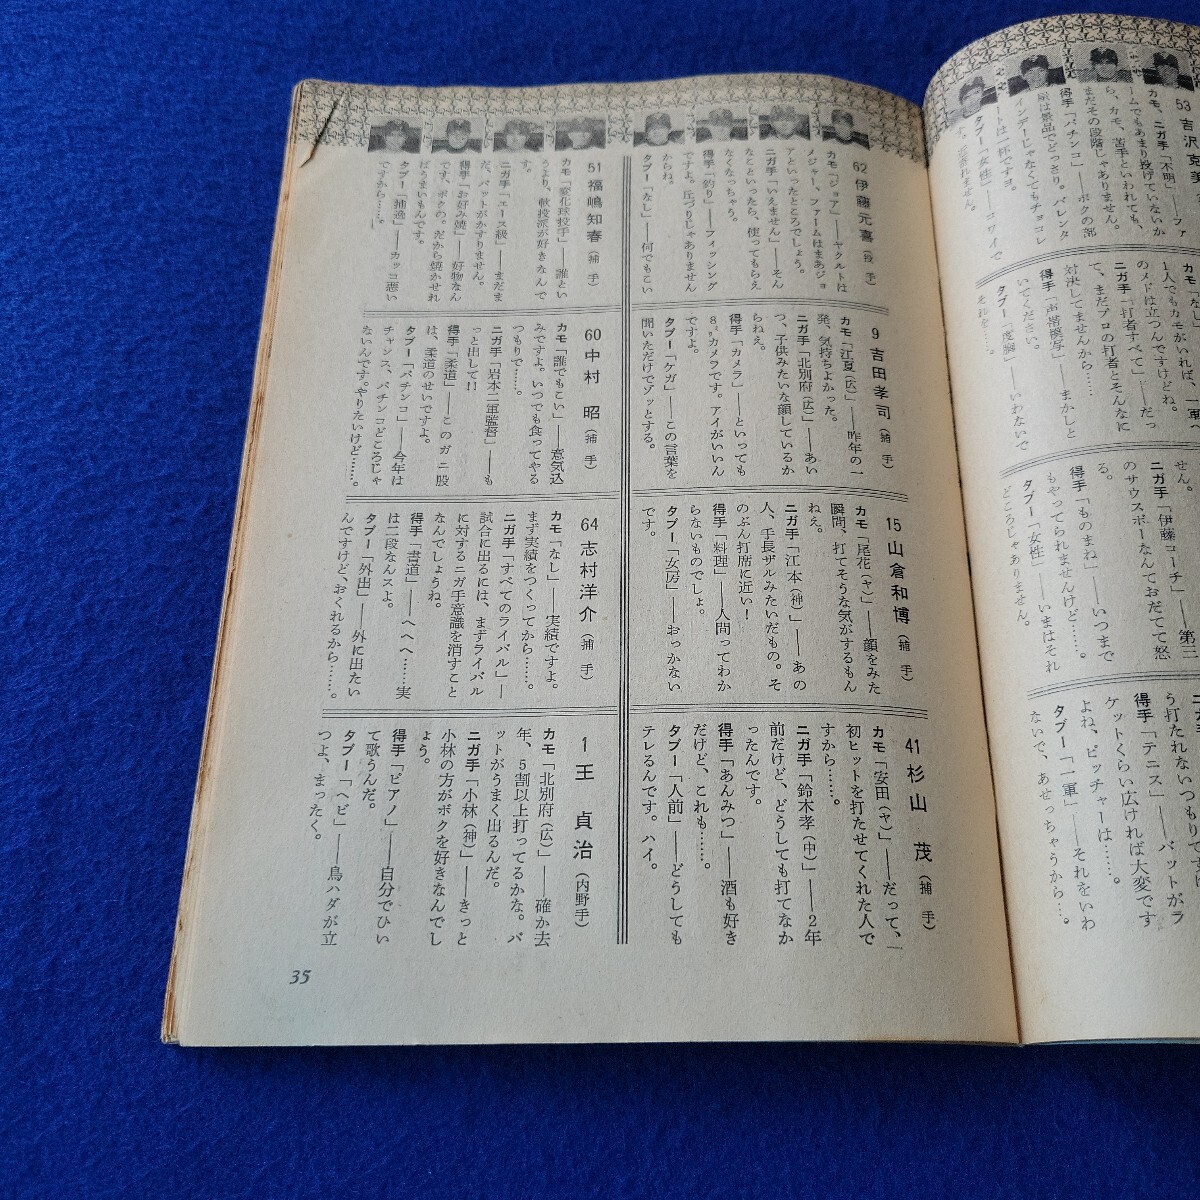 53 吉沢克美
カモ「不明」――ファ
ームでもあまり投げていないか
ら、カモ、苦手といわれても、
まだその段階じゃありません。
得手「パチンコ」――ボクの部
ートは一杯ですヨ。
タブー「女性」――コワイで
カモ「なし」
1人でもカモがいれば、一軍へ
のメドは立つんですけどね。
ニガ手「打者すべて」――だっ
て、まだプロの打者とそんなに
対決してませんから……
得手「声帯模写」――まかしと
いてください。
タブー「度胸」――いわないで
それを……。
せん。
ニガ手「伊藤コーチ」――第三
のサウスポーなんておだてて怒
る。
得手「ものまね」――いつまで
もやってられませんけど……。
タブー「女性」――いまはそれ
どころじゃありません。
う打たれないつもりです
得手「テニス」――バットがラ
ケットくらい広ければ大変です
よね、ピッチャーは……。
タブー「一軍」――それをいわ
ないで、あせっちゃうから…。
62 伊藤元喜（投手）
カモ「ジョア」――ヤクルトは
メジャー、ファームはまあジョ
アといったところでしょう。
ニガ手「いえません」――そん
なことといったら、使ってもらえ
なくなっちゃう。
得手「釣り」――フィッシング
ですよ。丘づりじゃありません
からね。
タブー「なし」――何でもこい
9 吉田孝司（捕手）
カモ「江夏（広）」――昨年の一
発、気持ちよかった。
ニガ手「北別府（広）」――あい
つ、子供みたいな顔しているか
らねえ。
得手「カメラ」――といっても
8㍉カメラです。アイがいいん
ですよ。
タブー「ケガ」――この言葉を
聞いただけでゾッとする。
15 山倉和博（捕手）
カモ「尾花（ヤ）」――顔をみた
瞬間、打てそうな気がするもん
ねえ。
ニガ手「江本（神）」――あの
人、手長ザルみたいだもの。そ
のぶん打席に近い！
得手「料理」――人間ってわか
らないものでしょ。
タブー「女房」――おっかない
です。
41 杉山 茂（捕手）
カモ「安田（ヤ）」――だって、一
初ヒットを打たせてくれた人で
すから……。
ニガ手「鈴木孝（中）」――2年
前だけど、どうしても打てなか
ったんです。
得手「あんみつ」――酒も好き
だけど、これも……。
タブー「人前」――どうしても
テレるんです。ハイ。
51 福嶋知春（捕手）
カモ「変化球投手」――誰とい
うより、軟投派が好きなんで
す。
ニガ手「エース級」――まだま
だ、バットがかすりません。
得手「お好み焼」――好物なん
です、ボクの。だから焼かせれ
ばうまいもんです。
タブー「捕逸」――カッコ悪い
ですから……。
60 中村 昭（捕手）
カモ「誰でもこい」――意気込
みですよ。いつでも食ってやる
つもりで……。
ニガ手「岩本二軍監督」――も
っと出して!!
得手「柔道」――このガニ股
は、柔道のせいですよ。
タブー「パチンコ」――今年は
チャンス、パチンコどころじゃ
ないんです。やりたいけど……。
64 志村洋介（捕手）
カモ「なし」――実績ですよ。
まず実績をつくってから……。
ニガ手「すべてのライバル」―
試合に出るには、まずライバル
に対するニガ手意識を消すこと
なんでしょうね。
得手「書道」――へへへ……実
は二段なんスよ。
タブー「外出」――外に出たい
んですけど、おくれるから……。
1 王 貞治（内野手）
カモ「北別府（広）」――確か去
年、5割以上打ってるかな。バ
ットがうまく出るんだ。
ニガ手「小林（神）」――きっと
小林の方がボクを好きなんでし
ょう。
得手「ピアノ」――自分でひい
て歌うんだ。
タブー「ヘビ」――鳥ハダが立
つよ、まったく。
35